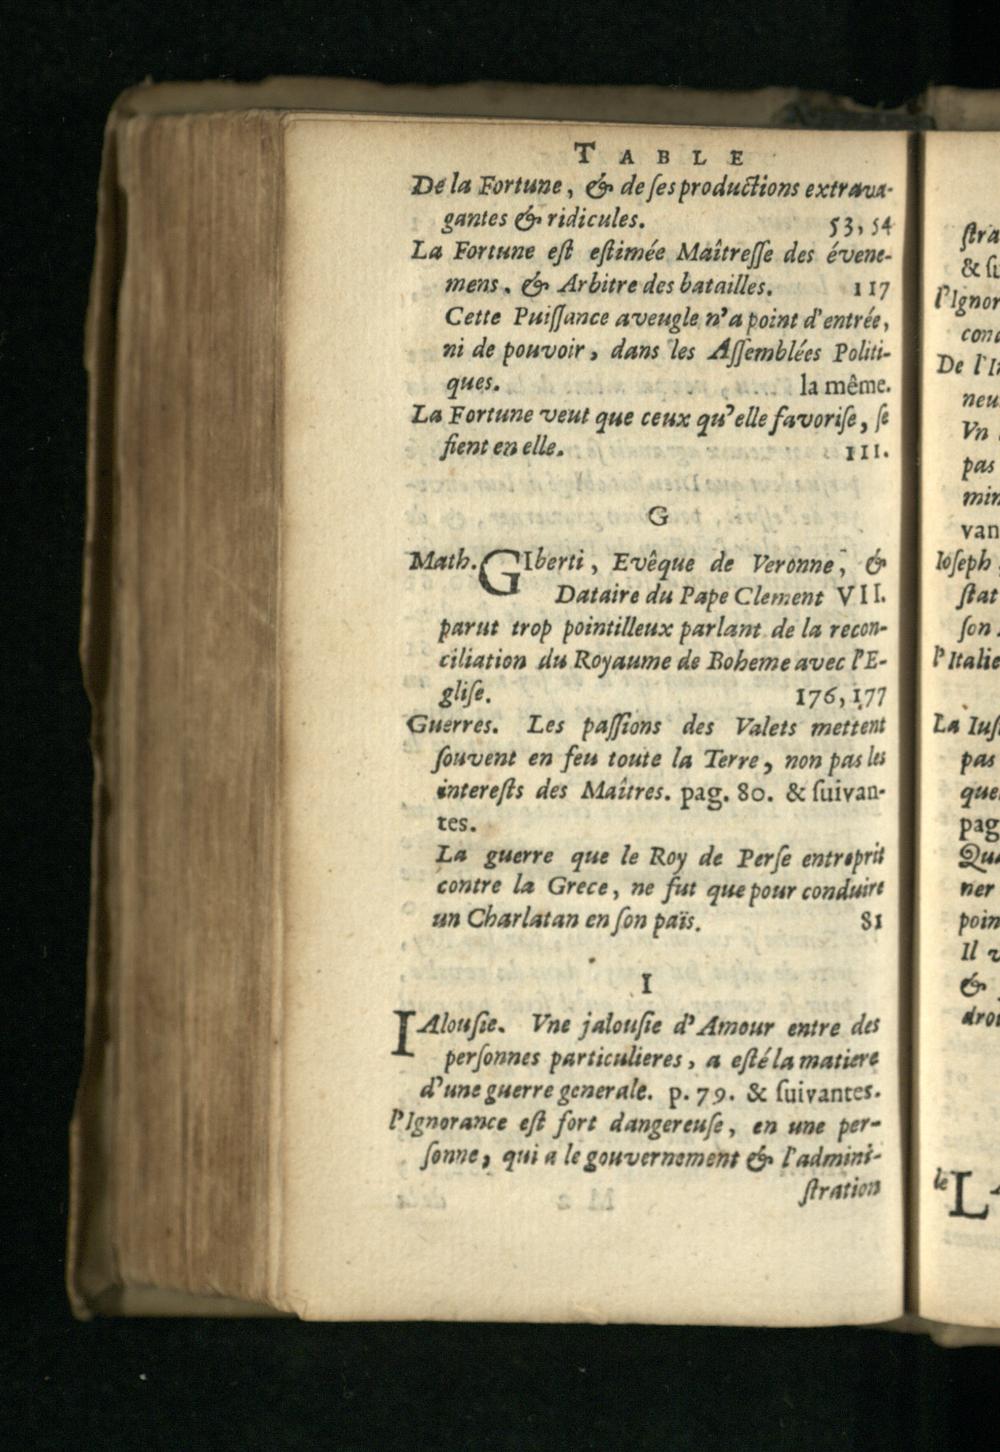 TABLE
De la Fortune, & de ſes productions extrava-
gantes & ridicules. 53, 54
La Fortune eſt eſtimée Maîtreſſe des évene-
mens. & Arbitre des batailles. 117
Cette Puiſſance aveugle n'a point d'entrée,
ni de pouvoir, dans les Aſſemblées Politi-
ques. la même.
La Fortune veut que ceux qu'elle favoriſe, ſe
fient en elle. 111.
G
Math. GIberti, Evêque de Veronne, &
Dataire du Pape Clement VII.
parut trop pointilleux parlant de la recon-
ciliation du Royaume de Boheme avec l'E-
gliſe. 176, 177
Guerres. Les paſſions des Valets mettent
ſouvent en feu toute la Terre, non pas les
intereſts des Maîtres. pag. 80. & ſuivan-
tes.
La guerre que le Roy de Perſe entreprit
contre la Grece, ne fut que pour conduire
un Charlatan en ſon païs. 81
I
IAlouſie. Vne jalouſie d'Amour entre des
perſonnes particulieres, a eſté la matiere
d'une guerre generale. p. 79. & ſuivantes.
l'Ignorance eſt fort dangereuſe, en une per-
ſonne, qui a le gouvernement & l'admini-
ſtration
ſtra
& ſu
l'Ignor
cond
De l'I
neu
Vn
pas
min
van
Ioſeph
ſtat
ſon
l'Italie
La Iuſ
pas
que
pag
Qua
ner
poin
Il v
&
droi
le L